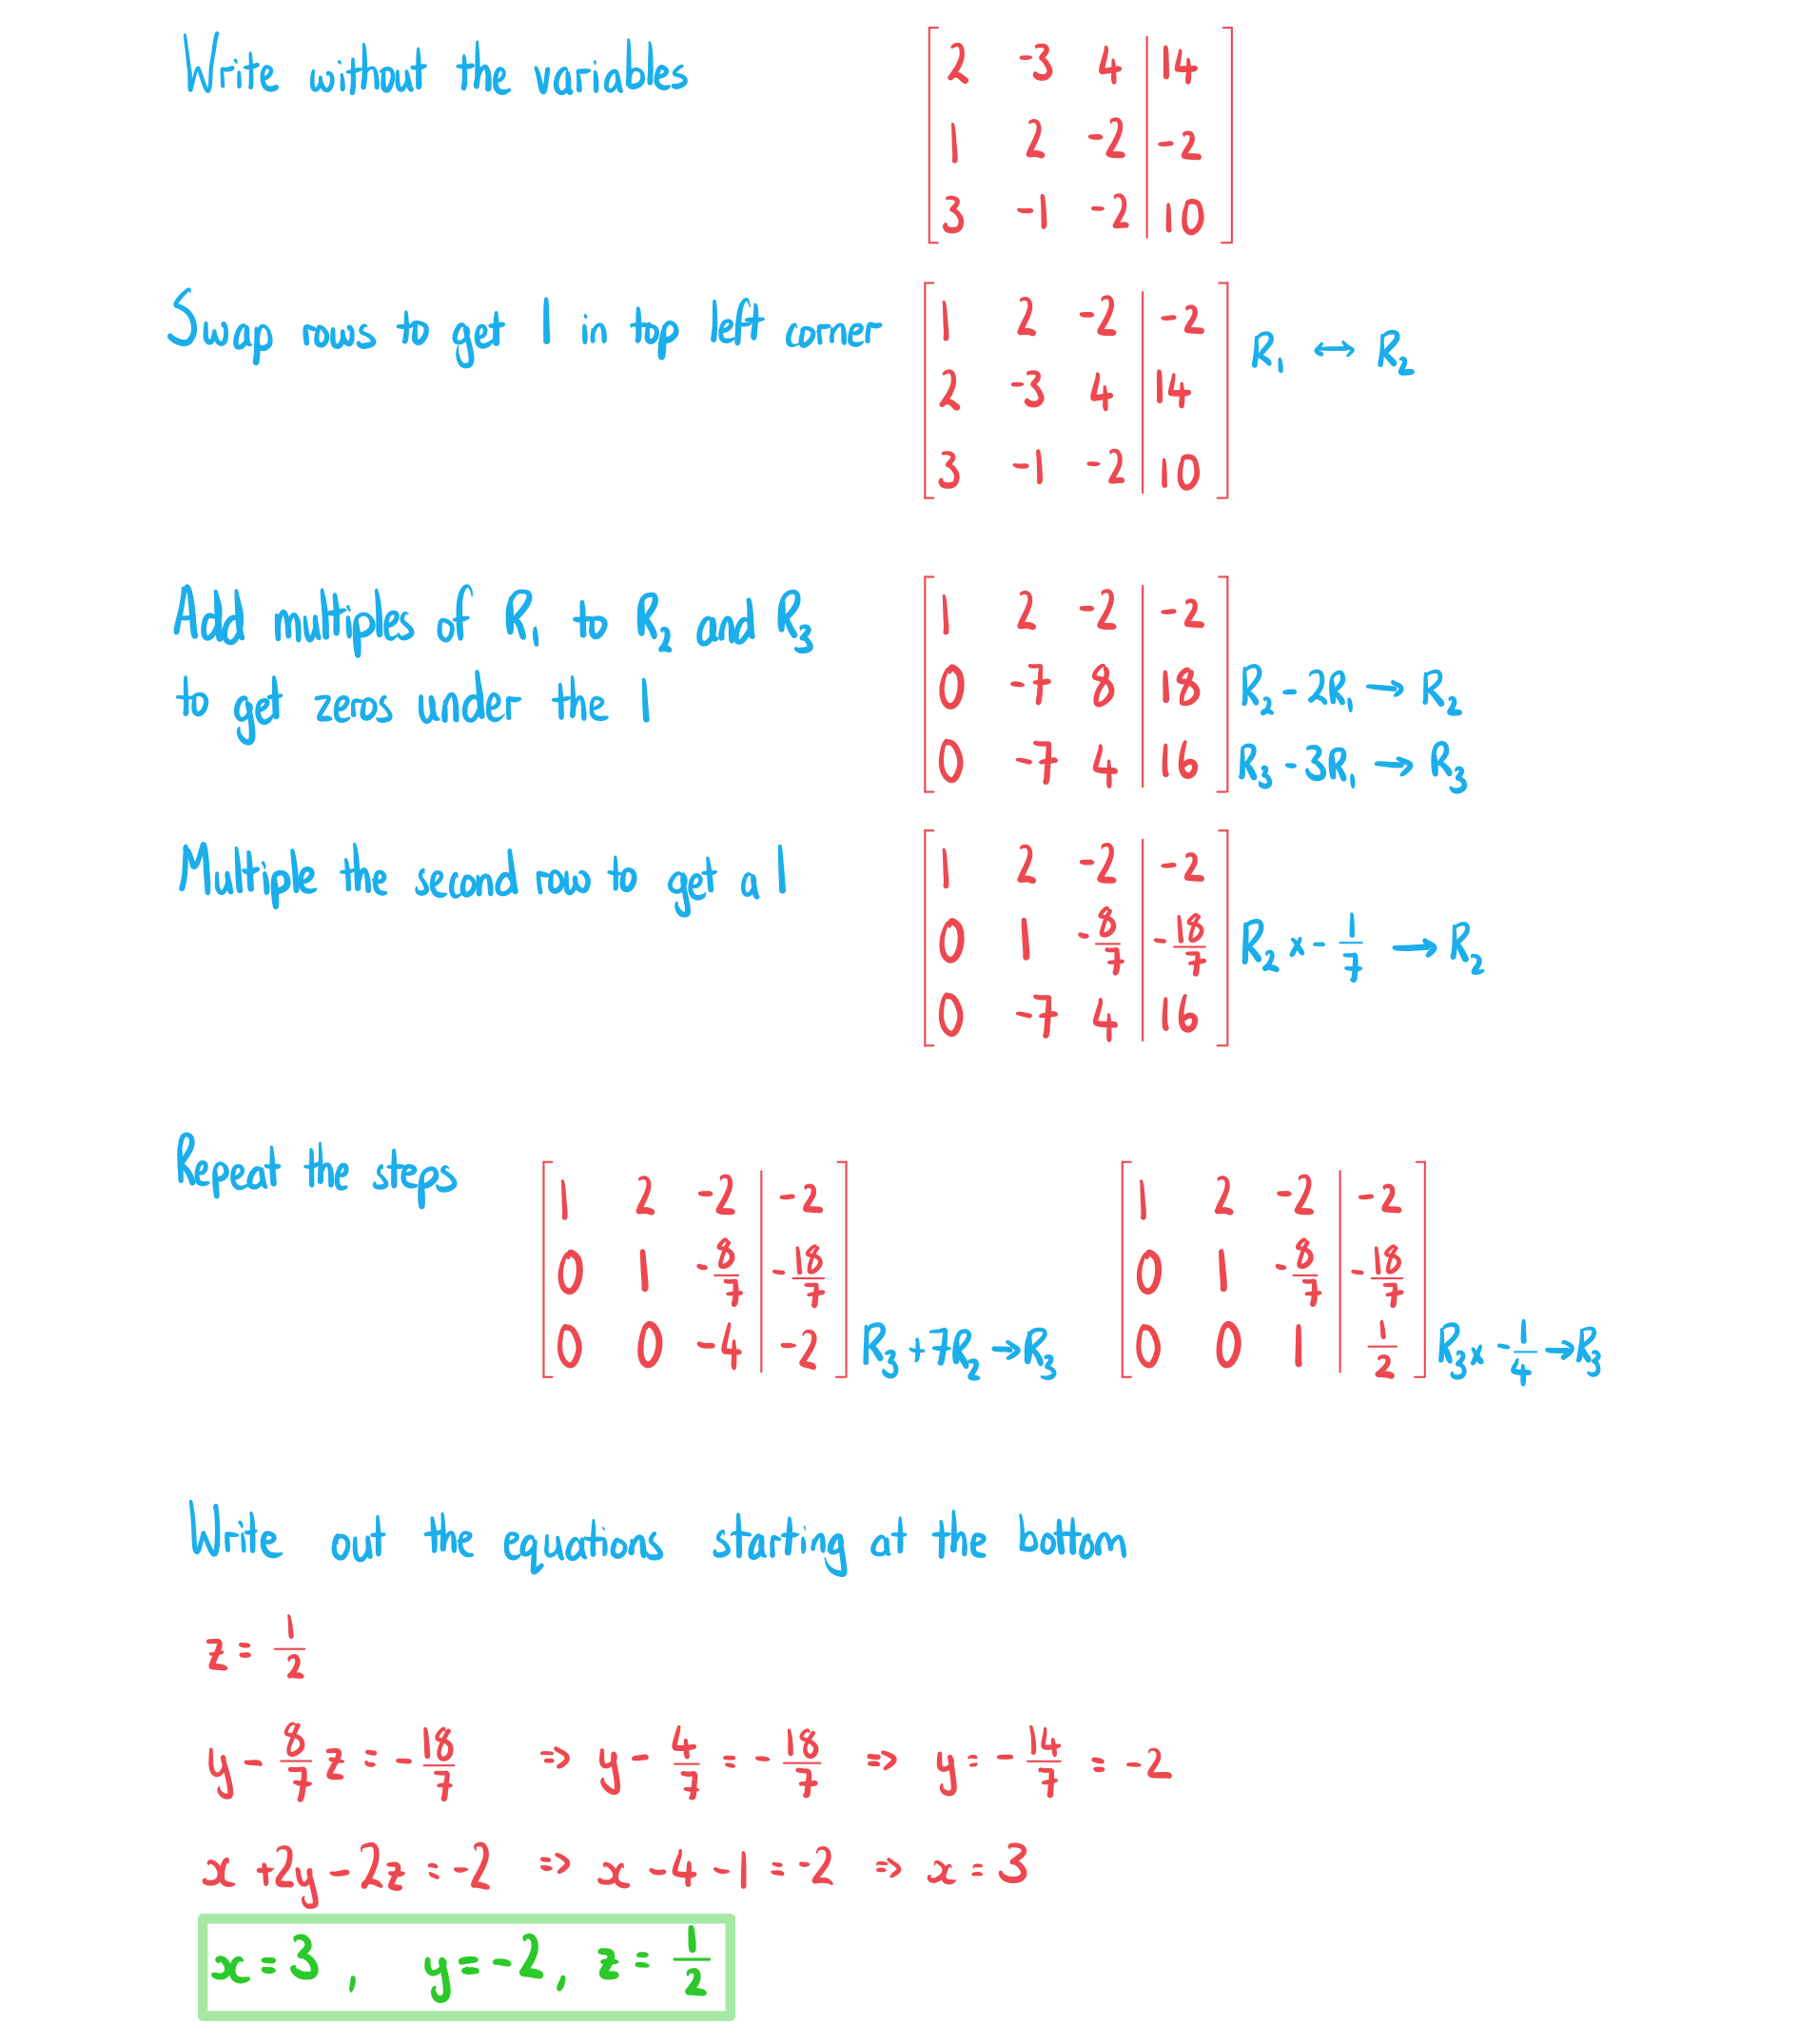 Write without the variables
2 -3 4 | 14
1 2 -2 | -2
3 -1 -2 | 10
Swap rows to get 1 in top left corner
1 2 -2 | -2
2 -3 4 | 14
3 -1 -2 | 10
R₁ ↔ R₂
Add multiples of R₁ to R₂ and R₃
to get zeros under the 1
1 2 -2 | -2
0 -7 8 | 18 R₂ - 2R₁ → R₂
0 -7 4 | 16 R₃ - 3R₁ → R₃
Multiple the second row to get a 1
1 2 -2 | -2
0 1 -8/7 | -18/7 R₂ × -1/7 → R₂
0 -7 4 | 16
Repeat the steps
1 2 -2 | -2
0 1 -8/7 | -18/7
0 0 -4 | -2 R₃ + 7R₂ → R₃
1 2 -2 | -2
0 1 -8/7 | -18/7
0 0 1 | 1/2 R₃ × -1/4 → R₃
Write out the equations starting at the bottom
z = 1/2
y - 8/7 z = -18/7 => y - 4/7 = -18/7 => y = -14/7 = -2
x + 2y - 2z = -2 => x - 4 - 1 = -2 => x = 3
x = 3 , y = -2 , z = 1/2